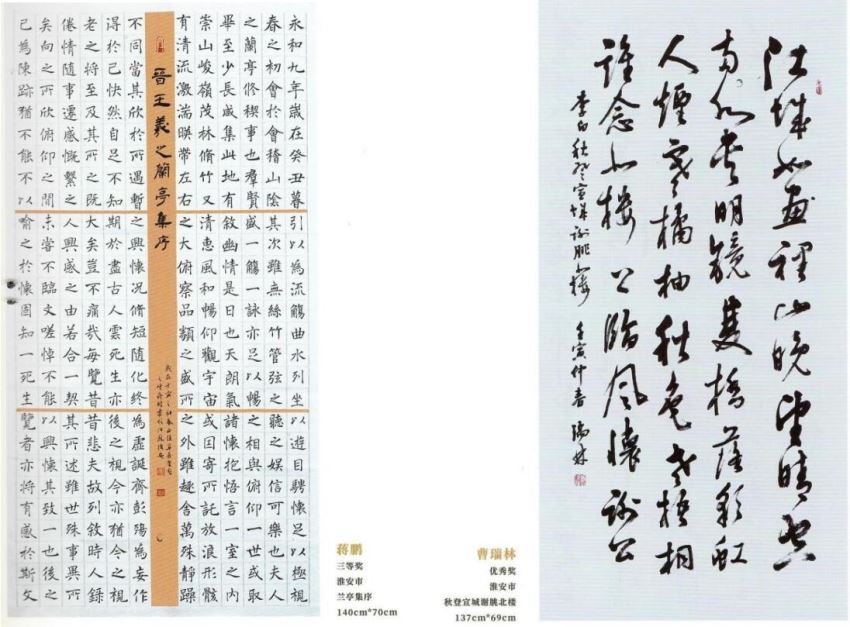 永和九年歲在癸丑暮
春之初會於會稽山陰
之蘭亭修禊事也羣賢
畢至少長咸集此地有
崇山峻嶺茂林脩竹又
有清流激湍暎帶左右
引以為流觴曲水列坐
其次雖無絲竹管弦之
盛一觴一詠亦足以暢
敘幽情是日也天朗氣
清惠風和暢仰觀宇宙
之大俯察品類之盛所
以遊目騁懷足以極視
聽之娛信可樂也夫人
之相與俯仰一世或取
諸懷抱悟言一室之內
或因寄所託放浪形骸
之外雖趣舍萬殊靜躁
晉王羲之蘭亭集序
不同當其欣於所遇暫
得於己快然自足不知
老之將至及其所之既
倦情隨事遷感慨繫之
矣向之所欣俯仰之間
已為陳跡猶不能不以
之興懷況脩短隨化終
期於盡古人雲死生亦
大矣豈不痛哉每覽昔
人興感之由若合一契
未嘗不臨文嗟悼不能
喻之於懷固知一死生
為虛誕齊彭殤為妄作
後之視今亦猶今之視
昔悲夫故列敘時人錄
其所述雖世殊事異所
以興懷其致一也後之
覽者亦將有感於斯文
蒋鹏
三等奖
淮安市
兰亭集序
140cm*70cm
江城如畫裡山晚望晴空
兩水夾明鏡雙橋落彩虹
人煙寒橘柚秋色老梧桐
誰念北樓上臨風懷謝公
李白秋登宣城謝朓北樓 壬寅仲春 瑞林
曹瑞林
优秀奖
淮安市
秋登宣城谢朓北楼
137cm*69cm